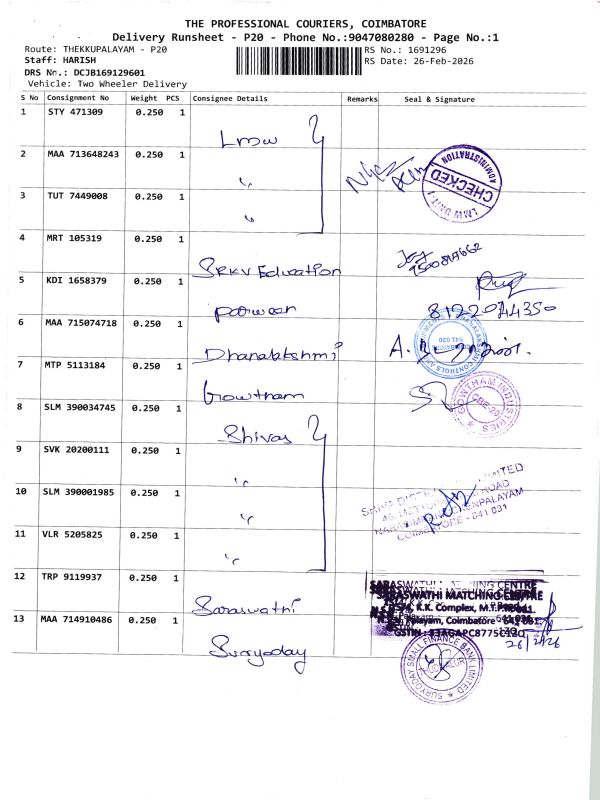 THE PROFESSIONAL COURIERS, COIMBATORE
Delivery Runsheet - P20 - Phone No.:9047080280 - Page No.:1
Route: THEKKUPALAYAM - P20
RS No.: 1691296
Staff: HARISH
RS Date: 26-Feb-2026
DRS No.: DCJB169129601
Vehicle: Two Wheeler Delivery
S No Consignment No Weight PCS Consignee Details Remarks Seal & Signature
1 STY 471309 0.250 1 Lmw
2 MAA 713648243 0.250 1 "
ADMINISTRATION
CHECKED
LMW UNIT
3 TUT 7449008 0.250 1 "
4 MRT 105319 0.250 1 SRKV Education
5 KDI 1658379 0.250 1
8122074350
6 MAA 715074718 0.250 1 Dhanalakshmi
641 020
7 MTP 5113184 0.250 1 Gowtham
GOWTHAM INDUSTRIES
CBE-20
8 SLM 390034745 0.250 1 Shivas
9 SVK 20200111 0.250 1 "
10 SLM 390001985 0.250 1 "
COIMBATORE - 641 031
11 VLR 5205825 0.250 1 "
12 TRP 9119937 0.250 1 Saraswathi
SARASWATHI MATCHING CENTRE
K.K. Complex,
Palayam, Coimbatore
13 MAA 714910486 0.250 1 Suryoday
26/2/26
SURYODAY SMALL FINANCE BANK LIMITED